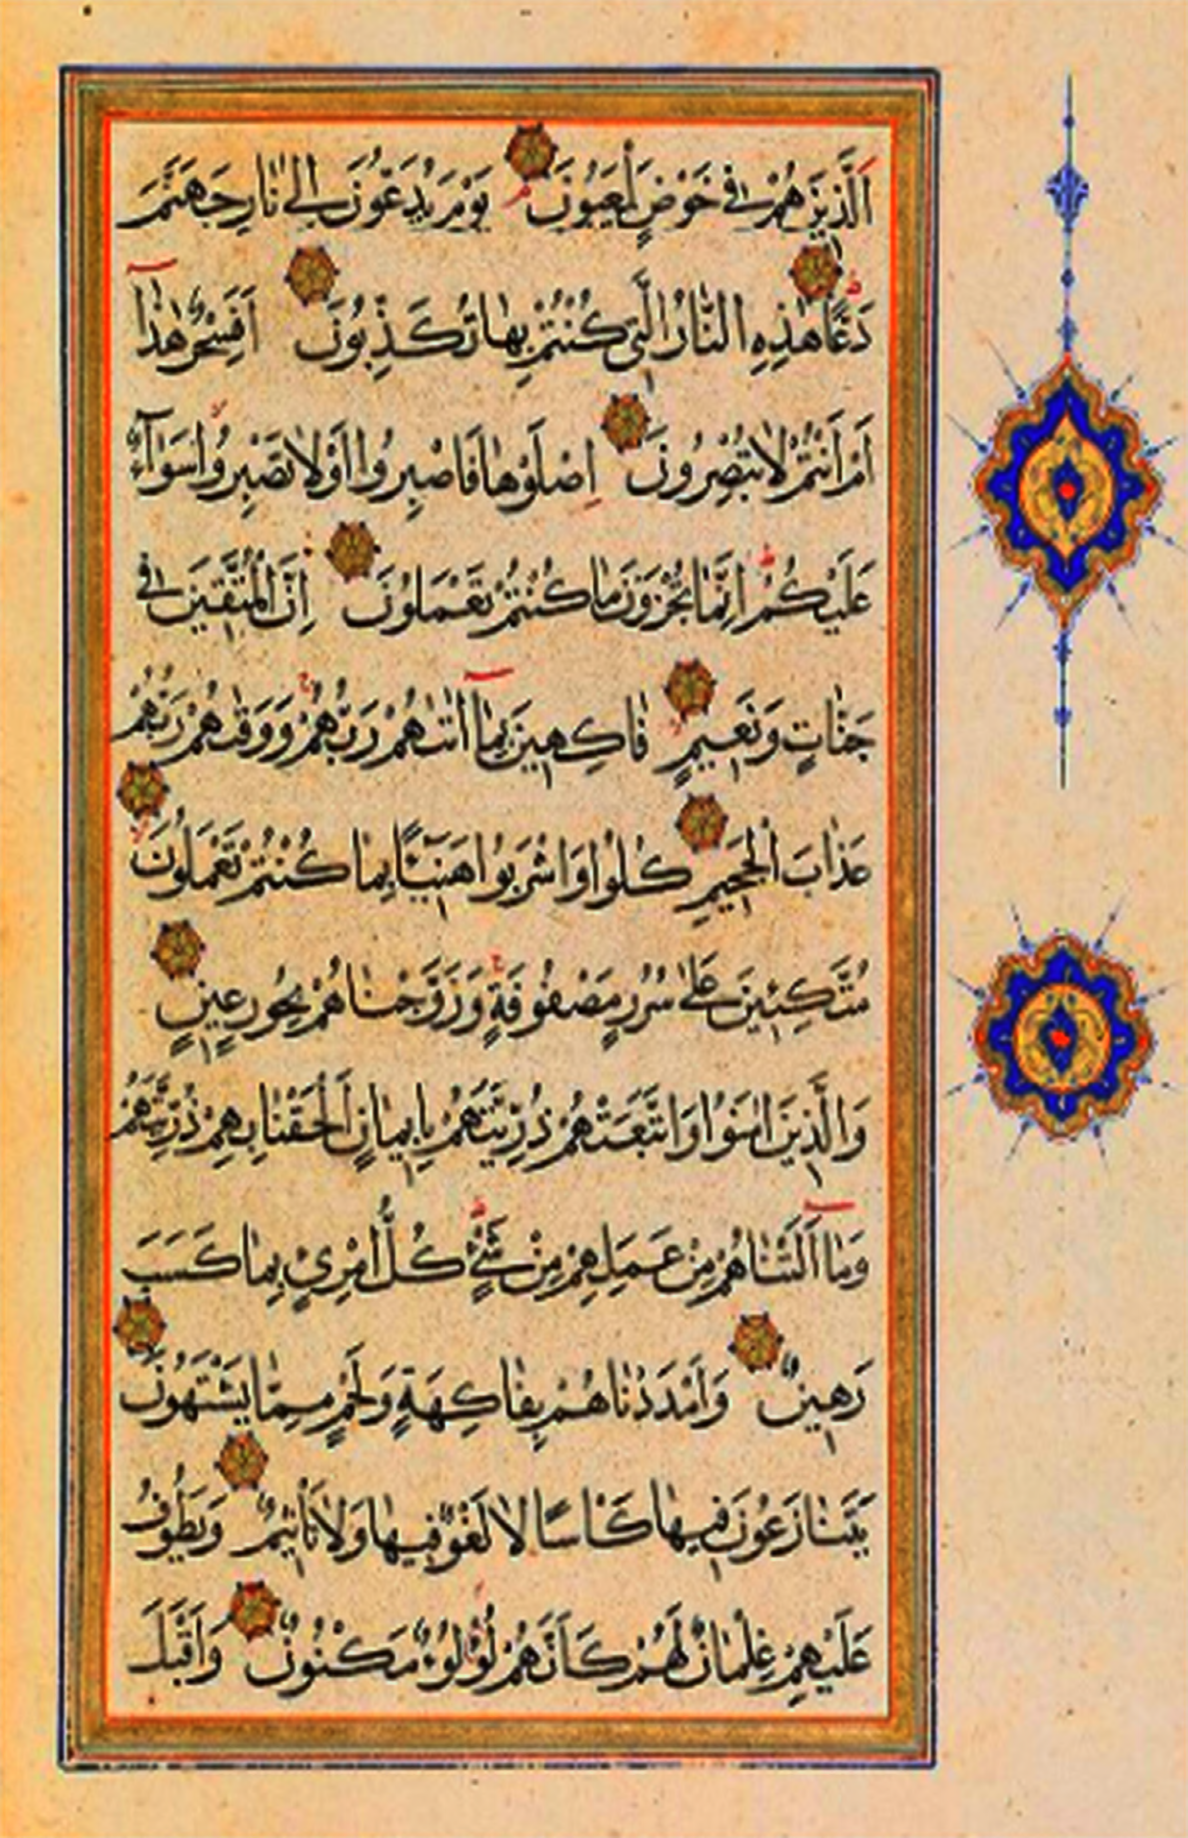 اَلَّذِينَ هُمْ فِي خَوْضٍ يَلْعَبُونَ يَوْمَ يُدَعُّونَ اِلٰى نَارِ جَهَنَّمَ
دَعًّا هٰذِهِ النَّارُ الَّتِي كُنْتُمْ بِهَا تُكَذِّبُونَ اَفَسِحْرٌ هٰذَا
اَمْ اَنْتُمْ لَا تُبْصِرُونَ اِصْلَوْهَا فَاصْبِرُوا اَوْ لَا تَصْبِرُوا سَوَاءٌ
عَلَيْكُمْ اِنَّمَا تُجْزَوْنَ مَا كُنْتُمْ تَعْمَلُونَ اِنَّ الْمُتَّقِينَ فِي
جَنَّاتٍ وَنَعِيمٍ فَاكِهِينَ بِمَا اٰتٰيهُمْ رَبُّهُمْ وَوَقٰيهُمْ رَبُّهُمْ
عَذَابَ الْجَحِيمِ كُلُوا وَاشْرَبُوا هَنِيئًا بِمَا كُنْتُمْ تَعْمَلُونَ
مُتَّكِئِينَ عَلٰى سُرُرٍ مَصْفُوفَةٍ وَزَوَّجْنَاهُمْ بِحُورٍ عِينٍ
وَالَّذِينَ اٰمَنُوا وَاتَّبَعَتْهُمْ ذُرِّيَّتُهُمْ بِاِيمَانٍ اَلْحَقْنَا بِهِمْ ذُرِّيَّتَهُمْ
وَمَا اَلَتْنَاهُمْ مِنْ عَمَلِهِمْ مِنْ شَيْءٍ كُلُّ امْرِئٍ بِمَا كَسَبَ
رَهِينٌ وَاَمْدَدْنَاهُمْ بِفَاكِهَةٍ وَلَحْمٍ مِمَّا يَشْتَهُونَ
يَتَنَازَعُونَ فِيهَا كَأْسًا لَا لَغْوٌ فِيهَا وَلَا تَأْثِيمٌ وَيَطُوفُ
عَلَيْهِمْ غِلْمَانٌ لَهُمْ كَاَنَّهُمْ لُؤْلُؤٌ مَكْنُونٌ وَاَقْبَلَ